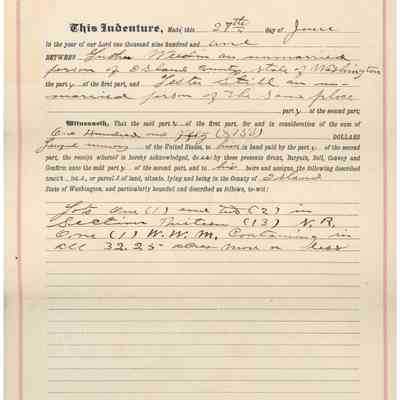 This Indenture, Made this 27th day of June
in the year of our Lord one thousand nine hundred and one
BETWEEN an unmarried
person of Island County, State of Washington
the party of the first part, and Still an un-
married person of the same place
party of the second part:
Witnesseth, That the said party of the first part, for and in consideration of the sum of
One Hundred and fifty ($150) DOLLARS
money of the United States, to him in hand paid by the party of the second
part, the receipt whereof is hereby acknowledged, does by these presents Grant, Bargain, Sell, Convey and
Confirm unto the said party of the second part, and to his heirs and assigns, the following described
tract, lot, or parcel of land, situate, lying and being in the County of Island
State of Washington, and particularly bounded and described as follows, to-wit:
Lots One (1) and two (2) in
Section (13) N. R.
One (1) W. W. M. Containing in
all 32.25 acres more or less